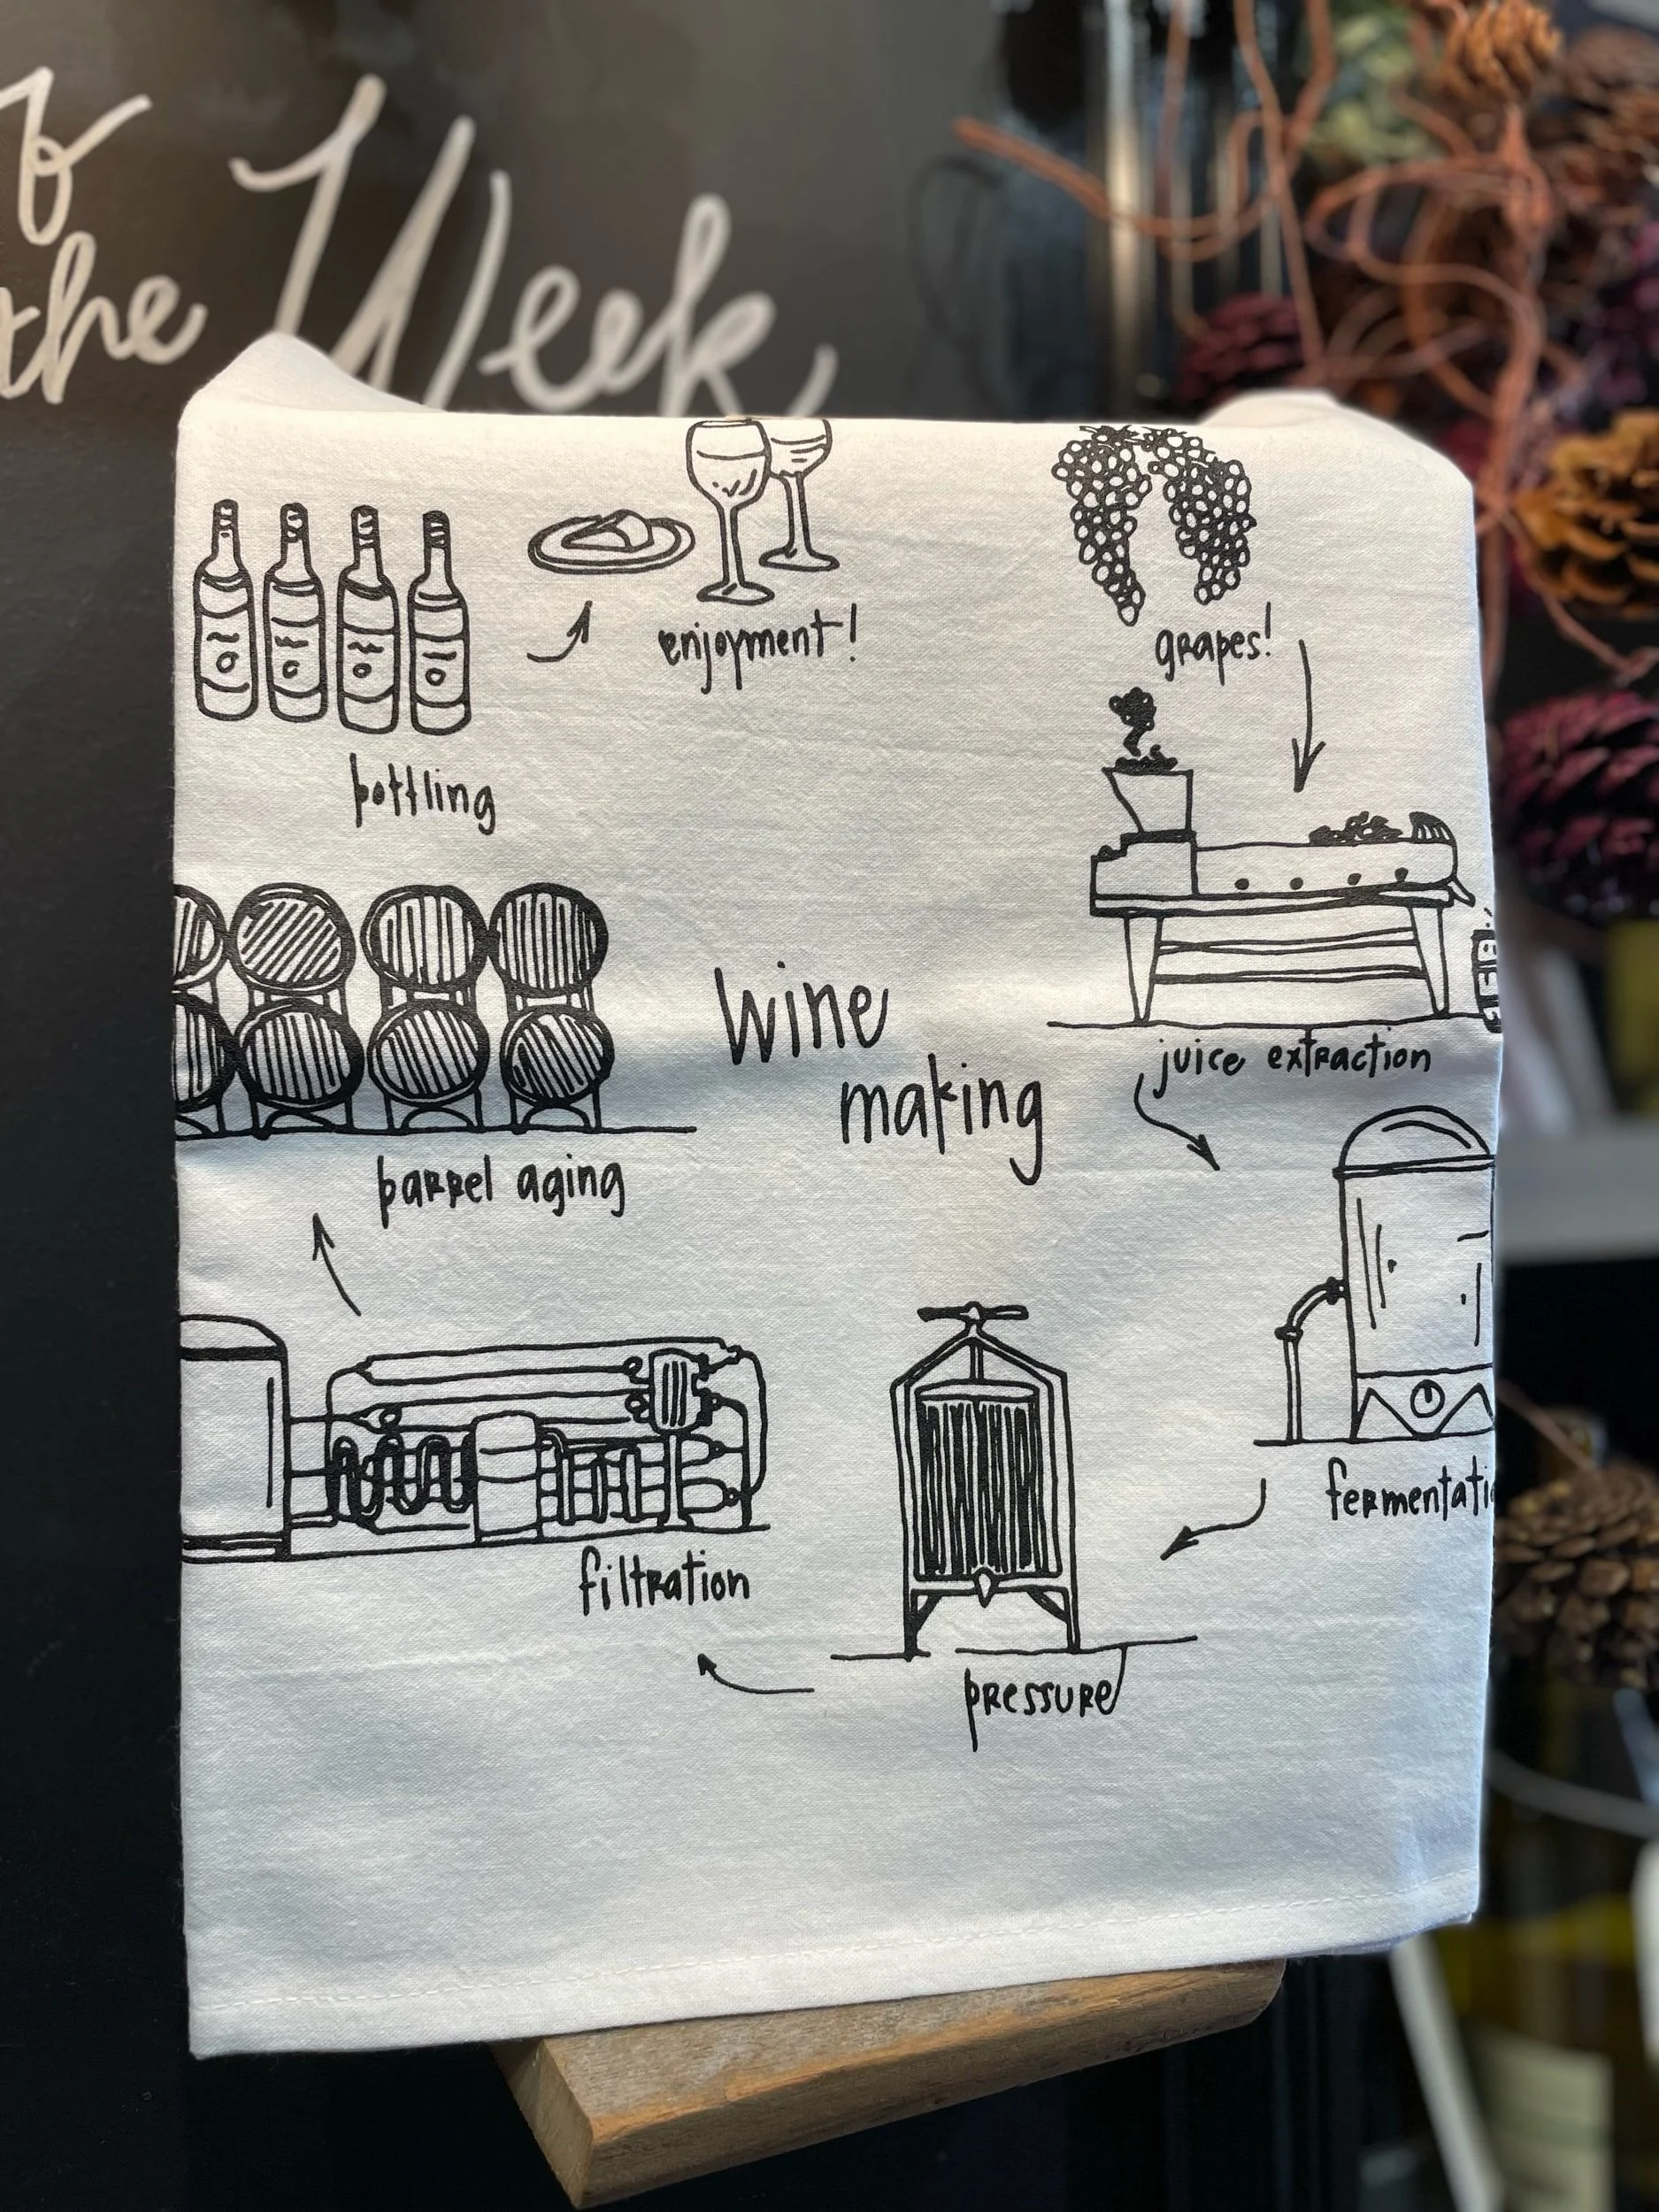 the Week
enjoyment!
grapes!
bottling
wine
making
juice extraction
barrel aging
fermentati
filtration
pressure